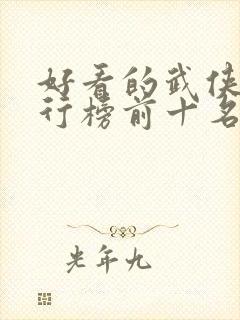 好看的武侠
行榜前十名
光年九